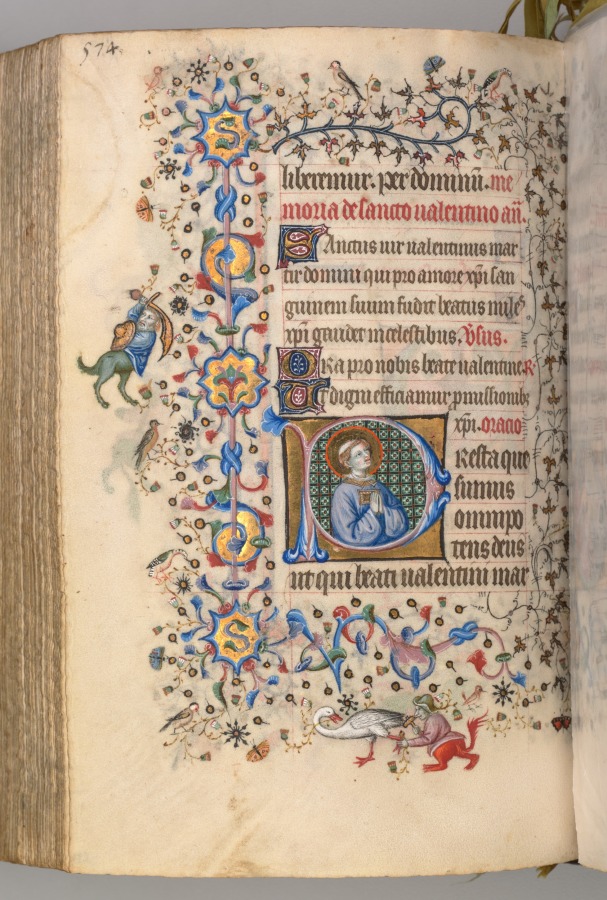 574
liberemur. per dominū. me
moria de sancto ualentino añ.
Sanctus uir ualentinus mar
tir domini qui pro amore xp̄i san
guinem suum fudit beatus miles
xp̄i gaudet in celestibus. v̄sus.
Ora pro nobis beate ualentine. R
Vt digni efficiamur p̄missionib9
xp̄i. oracio
Presta que
sumus
omnipo
tens deus
ut qui beati ualentini mar